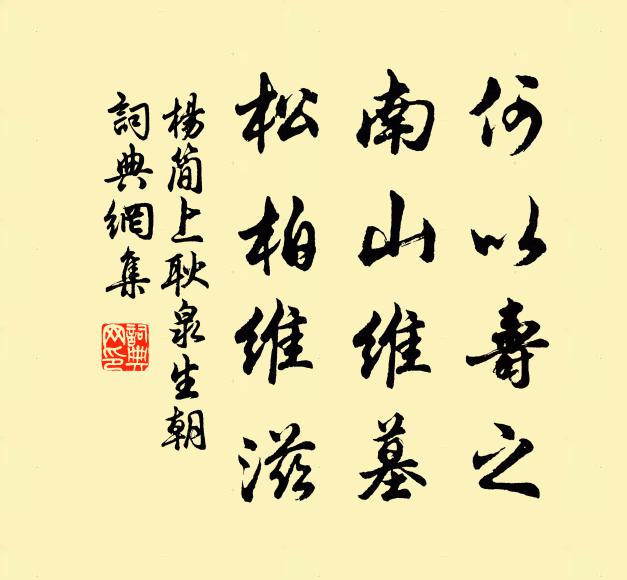 何以壽之
南山維墓
松柏維滋
楊簡上耿泉生朝
詞典網集
詞典网印